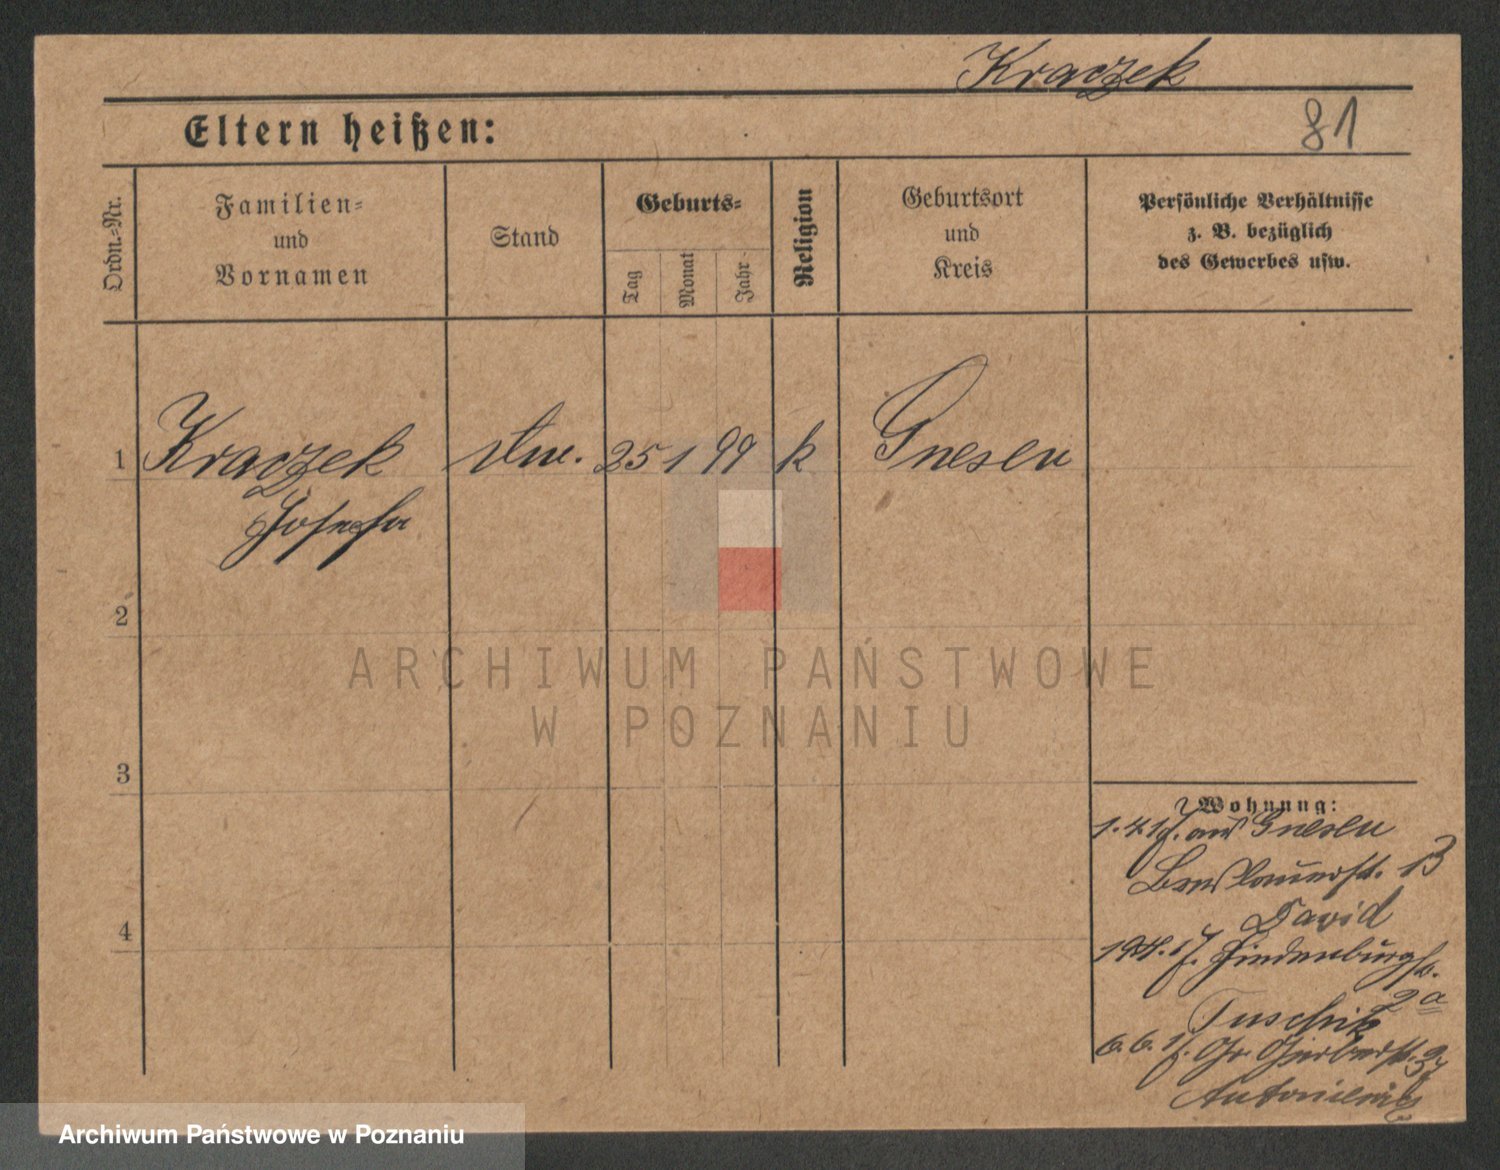 Kraczek
Eltern heißen:
81
Ordn.=Nr.
Familien=
und
Vornamen
Stand
Geburts=
Tag
Monat
Jahr
Religion
Geburtsort
und
Kreis
Persönliche Verhältnisse
z. B. bezüglich
des Gewerbes usw.
1 Kraczek 25 1 99 k Gnesen
Josefa
2
ARCHIWUM PAŃSTWOWE
W POZNANIU
3
Wohnung:
1.4.17. aus Gnesen
Breslauerst. 13
David
4
Hindenburgst.
2a
Tuschik
6.6.17. Gr. Gerberst.
Archiwum Państwowe w Poznaniu